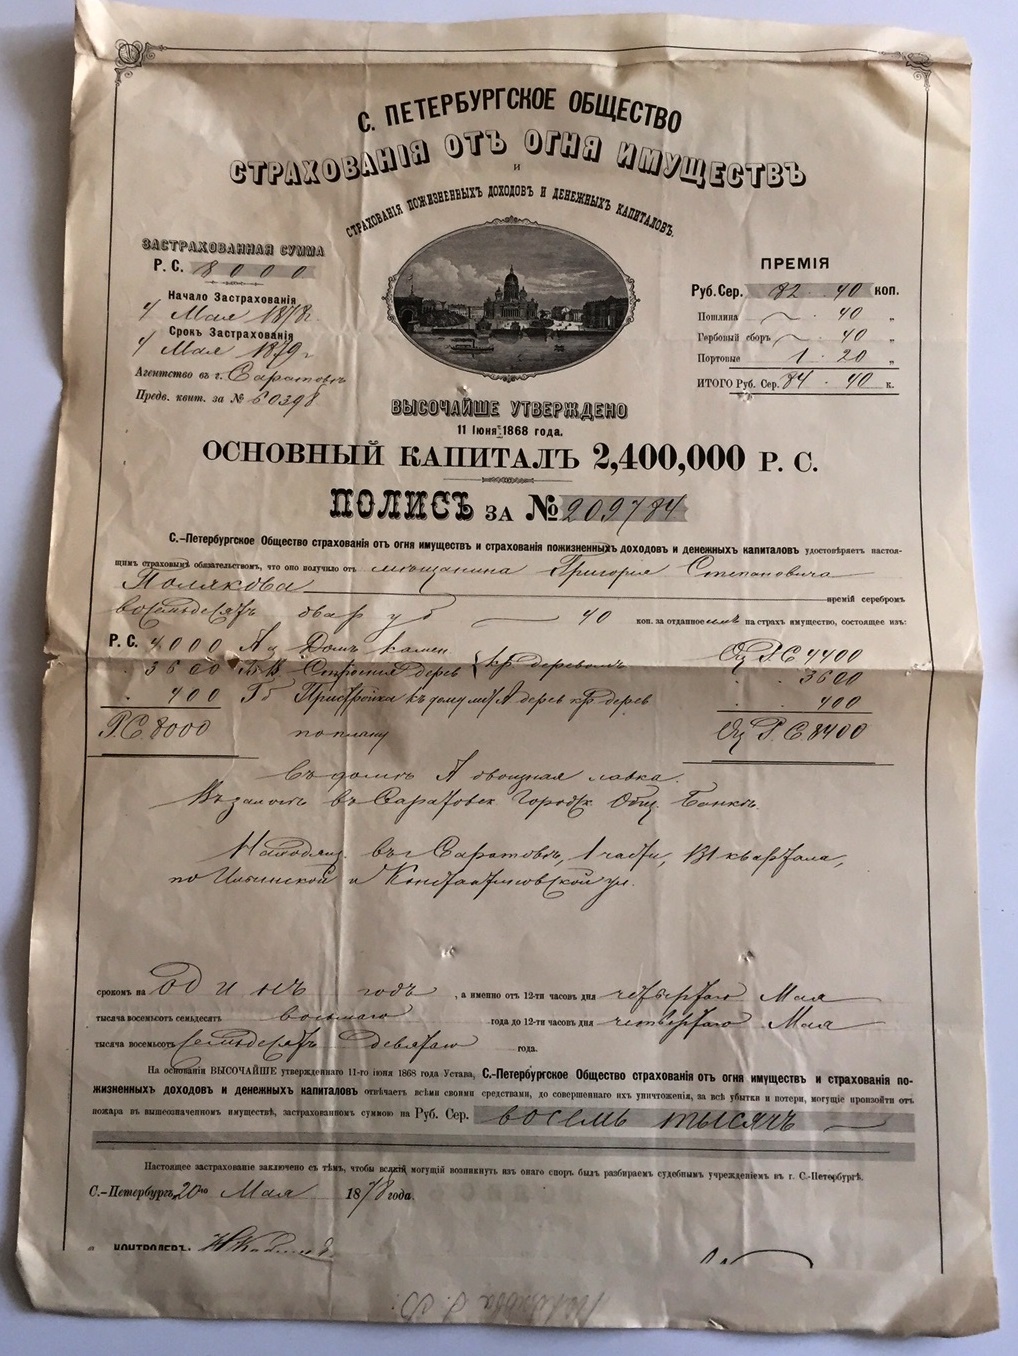 С. ПЕТЕРБУРГСКОЕ ОБЩЕСТВО
СТРАХОВАНІЯ ОТЪ ОГНЯ ИМУЩЕСТВЪ
и
СТРАХОВАНІЯ ПОЖИЗНЕННЫХЪ ДОХОДОВЪ И ДЕНЕЖНЫХЪ КАПИТАЛОВЪ.
ЗАСТРАХОВАННАЯ СУММА
Р. С. 8000
Начало Застрахованія
4 Мая 1878 г.
Срокъ Застрахованія
4 Мая 1879 г
Агентство въ г. Саратовѣ
Предв. квит. за № 60398
ПРЕМІЯ
Руб. Сер. 82 . 40 коп.
Пошлина 40 „
Гербовый сборъ 40 „
Портовые 1 . 20 „
ИТОГО Руб. Сер. 84 . 40 к.
ВЫСОЧАЙШЕ УТВЕРЖДЕНО
11 Іюня 1868 года.
ОСНОВНЫЙ КАПИТАЛЪ 2,400,000 Р. С.
ПОЛИСЪ ЗА № 209784
С.-Петербургское Общество страхованія отъ огня имуществъ и страхованія пожизненныхъ доходовъ и денежныхъ капиталовъ удостовѣряетъ настоя-
щимъ страховымъ обязательствомъ, что оно получило отъ мѣщанина Григорія Степановича
Полякова премій серебромъ
восемьдесятъ два руб 40 коп. за отданное имъ на страхъ имущество, состоящее изъ:
Р. С. 4000 Ац Домъ камен Оц Р.С 4400
3600 Строенія дерев кр деревомъ 3600
400 Гб Пристройка къ дому лит А дерев кр дерев 400
Р.С. 8000 по плану Оц Р.С. 8400
Въ домѣ А овощная лавка.
Въ залогѣ въ Саратовск. Городск. Общ. Банкѣ.
Находящ. въ г Саратовѣ, 1 части, 131 квартала,
по Ильинской и Константиновской ул.
срокомъ на одинъ годъ, а именно отъ 12-ти часовъ дня четвертаго Мая
тысяча восемьсотъ семьдесятъ восьмаго года до 12-ти часовъ дня четвертаго Мая
тысяча восемьсотъ семьдесятъ девятаго года.
На основаніи ВЫСОЧАЙШЕ утвержденнаго 11-го іюня 1868 года Устава, С.-Петербургское Общество страхованія отъ огня имуществъ и страхованія по-
жизненныхъ доходовъ и денежныхъ капиталовъ отвѣчаетъ всѣми своими средствами, до совершеннаго ихъ уничтоженія, за всѣ убытки и потери, могущіе произойти отъ
пожара въ вышеозначенномъ имуществѣ, застрахованномъ суммою на Руб. Сер. восемь тысячъ
Настоящее застрахованіе заключено съ тѣмъ, чтобы всякій могущій возникнуть изъ онаго споръ былъ разбираемъ судебнымъ учрежденіемъ въ г. С.-Петербургѣ.
С.-Петербургъ, 20го Мая 1878 года.
КОНТРОЛЕРЪ: